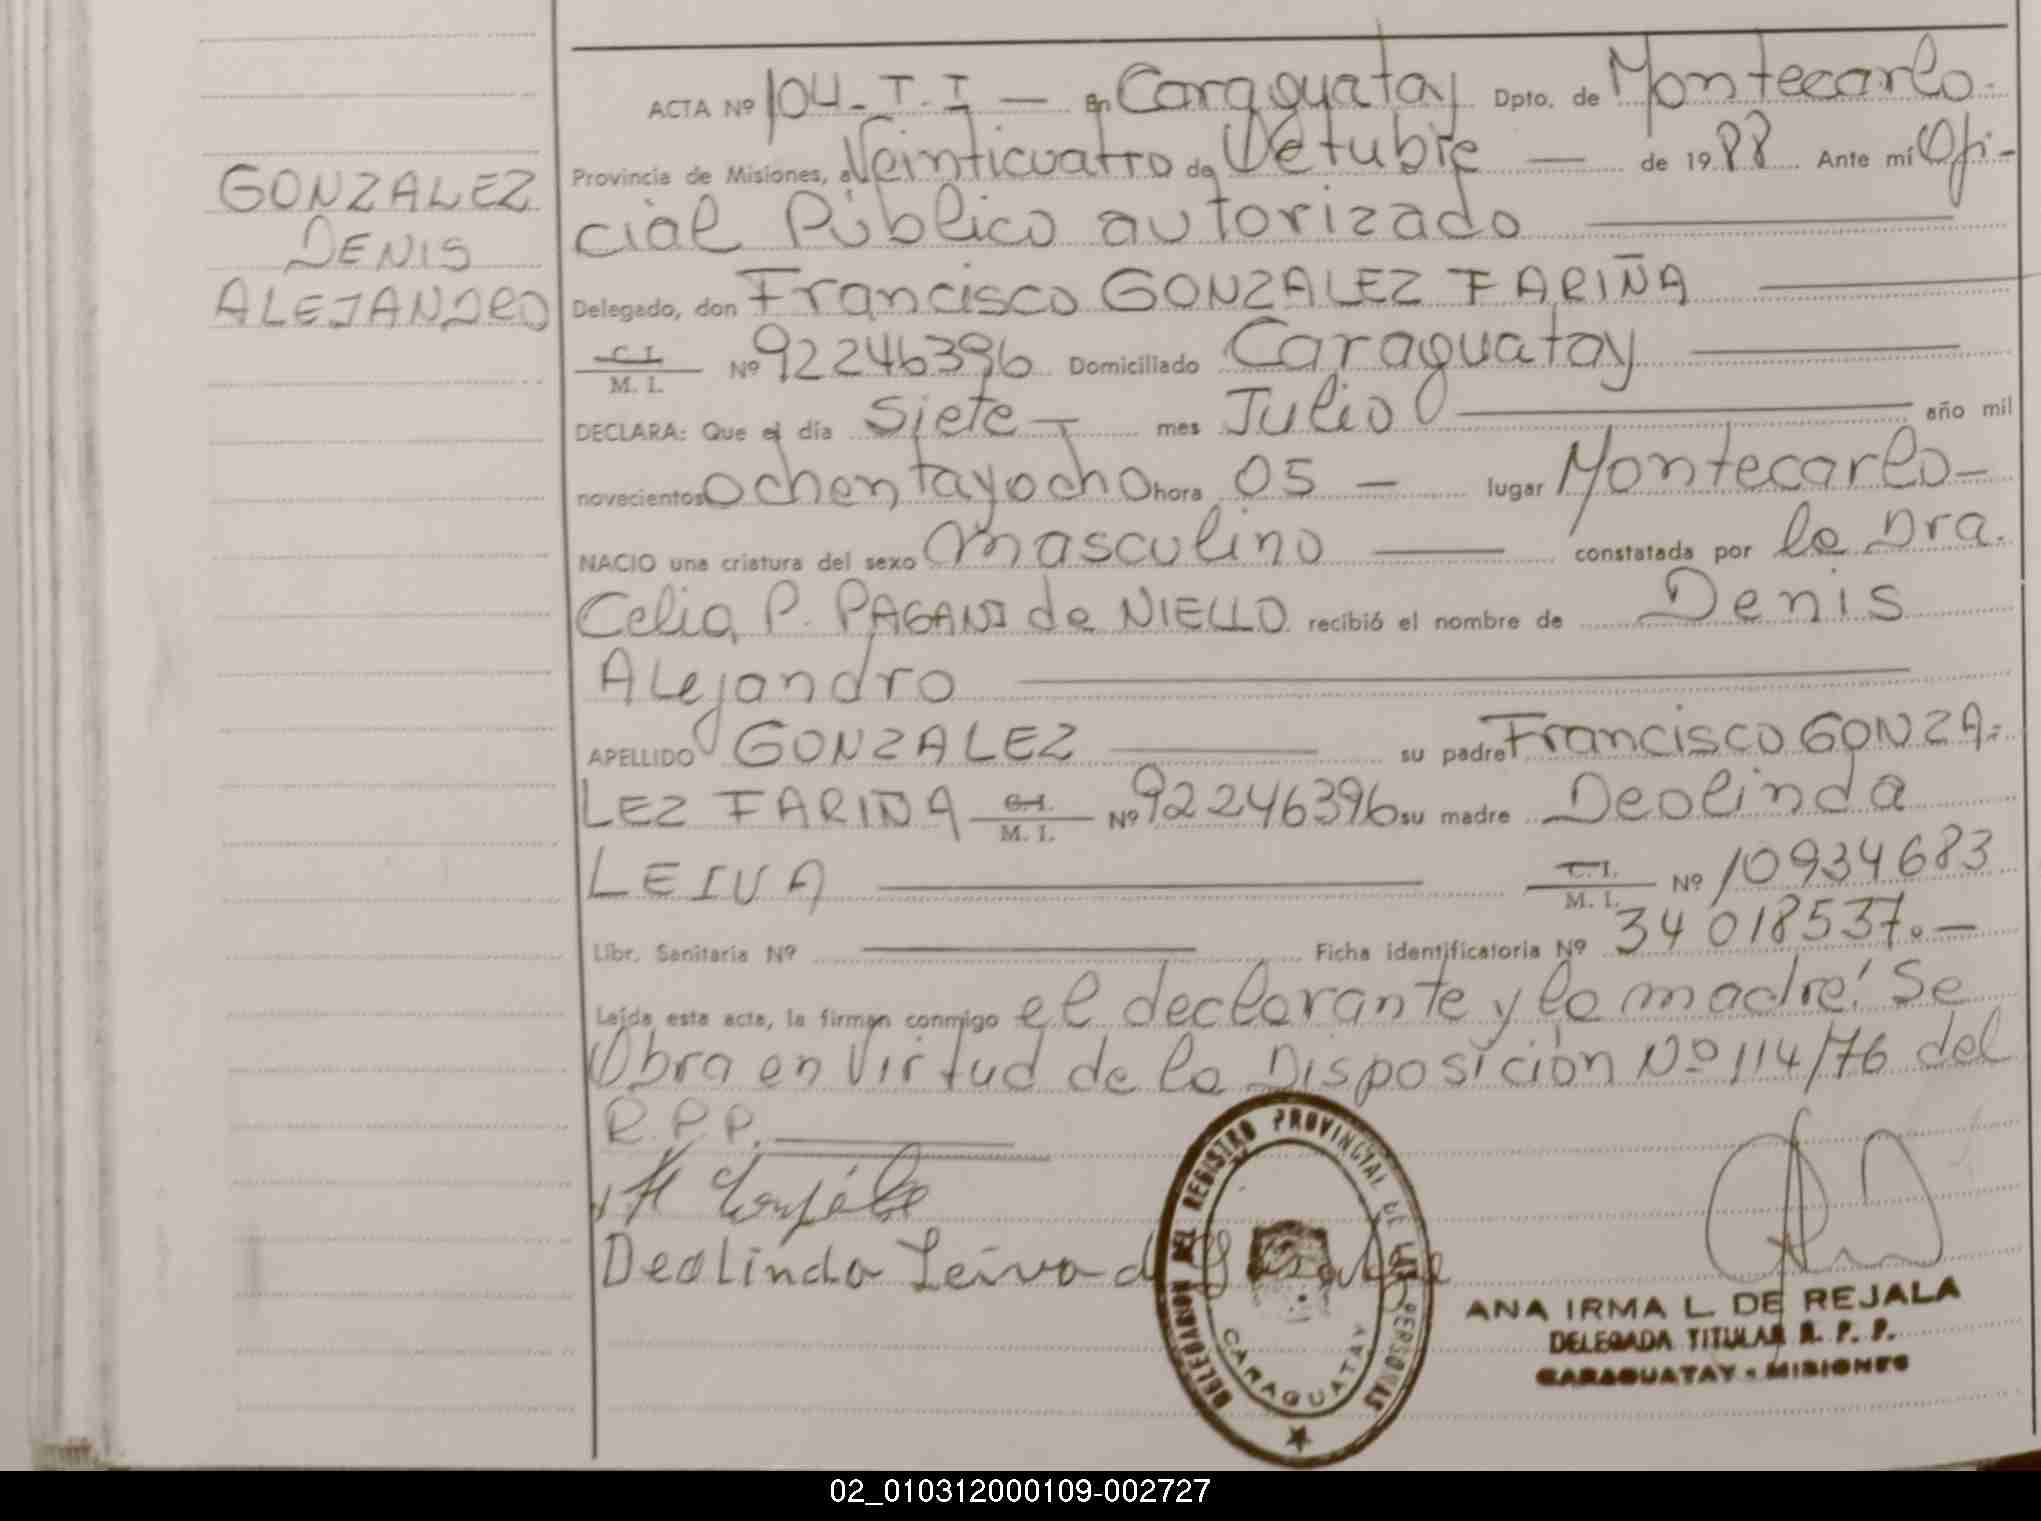 GONZALEZ
DENIS
ALEJANDRO
ACTA Nº 104-T.I — En Caraguatay Dpto. de Montecarlo.
Provincia de Misiones, a Veinticuatro de Octubre — de 1988 Ante mí Ofi-
cial Público autorizado
Delegado, don Francisco GONZALEZ FARIÑA
C. I. / M. I. Nº 92246396 Domiciliado Caraguatay
DECLARA: Que el día Siete — mes Julio año mil
novecientos ochentayocho hora 05 — lugar Montecarlo-
NACIO una criatura del sexo masculino constatada por la Dra.
Celia P. PAGANI de NIELLO recibió el nombre de Denis
Alejandro
APELLIDO GONZALEZ su padre Francisco GONZA-
LEZ FARIÑA C.I. / M. I. Nº 92246396 su madre Deolinda
LEIVA C.I. / M. I. Nº 10934683
Libr. Sanitaria Nº Ficha identificatoria Nº 34018537.—
Leída esta acta, la firman conmigo el declarante y la madre! Se
Obra en Virtud de la Disposición Nº 114/76 del
R.P.P.
Deolinda Leiva de
DELEGACION DEL REGISTRO PROVINCIAL DE LAS PERSONAS
CARAGUATAY
ANA IRMA L. DE REJALA
DELEGADA TITULAR R. P. P.
CARAGUATAY - MISIONES
02_010312000109-002727